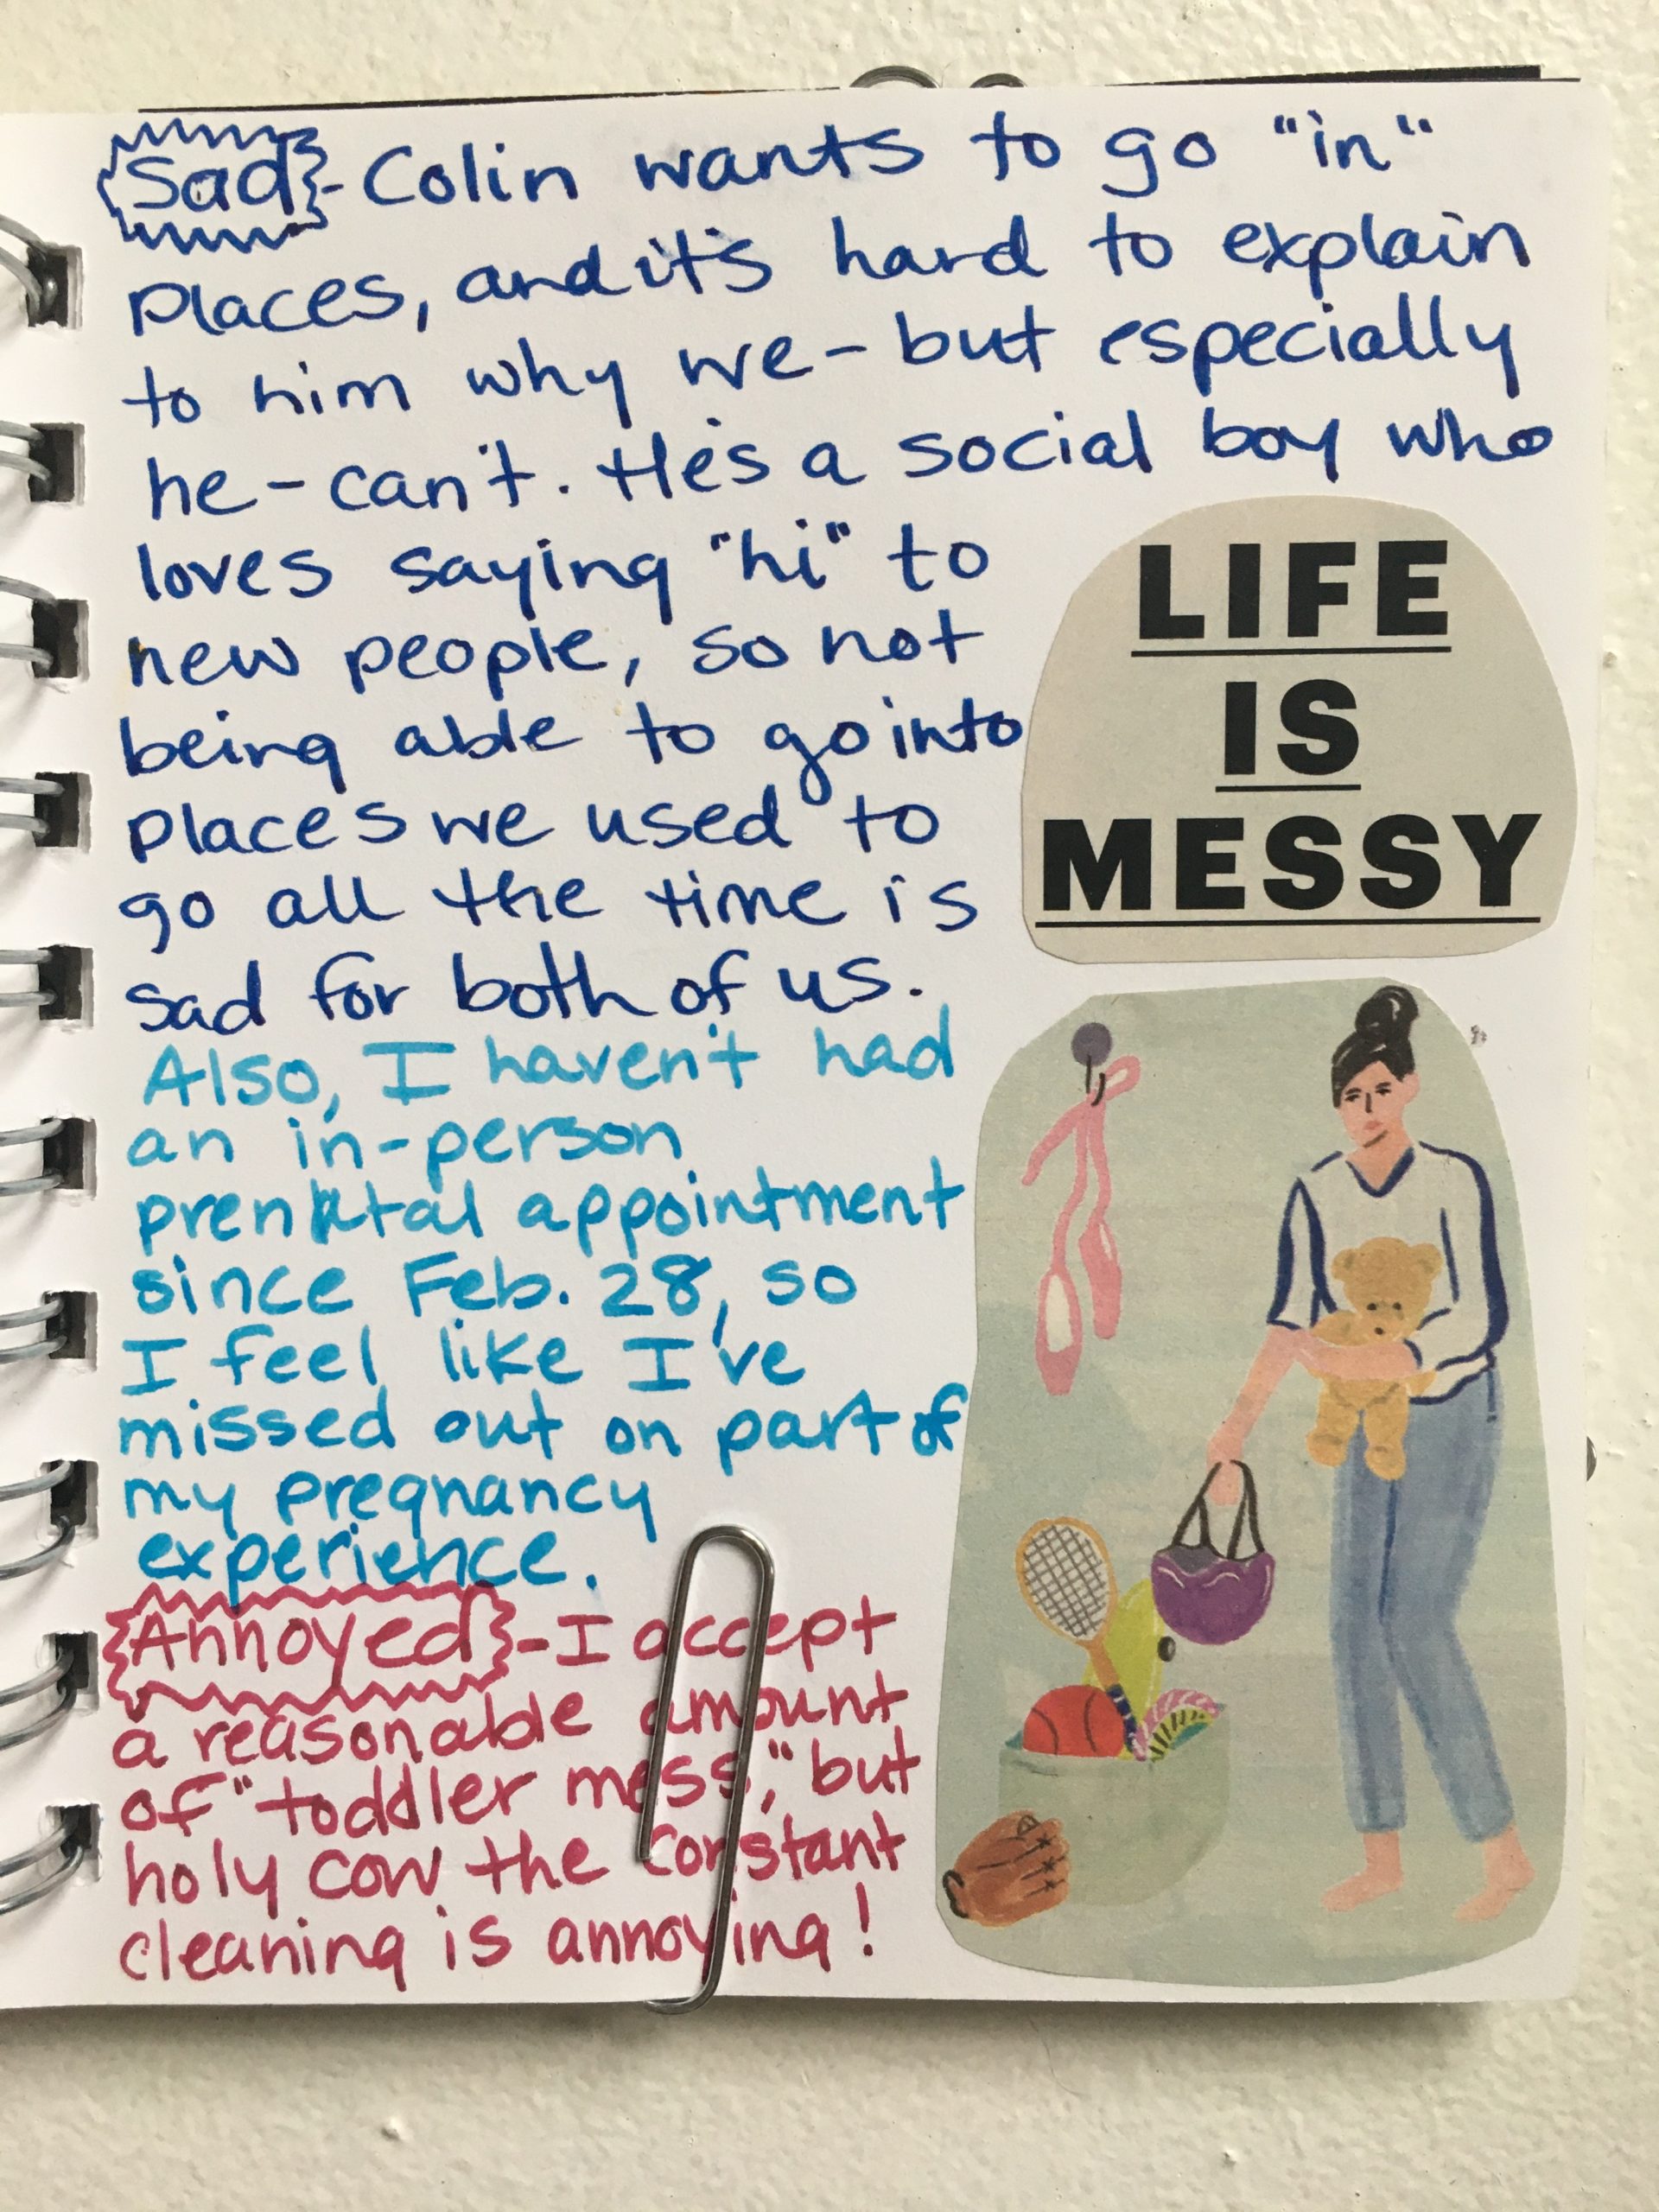 Sad - Colin wants to go "in"
places, and it's hard to explain
to him why we - but especially
he - can't. He's a social boy who
loves saying "hi" to
new people, so not
being able to go into
places we used to
go all the time is
sad for both of us.
Also, I haven't had
an in-person
prenatal appointment
since Feb. 28, so
I feel like I've
missed out on part of
my pregnancy
experience.
Annoyed - I accept
a reasonable amount
of "toddler mess," but
holy cow the constant
cleaning is annoying!
LIFE
IS
MESSY